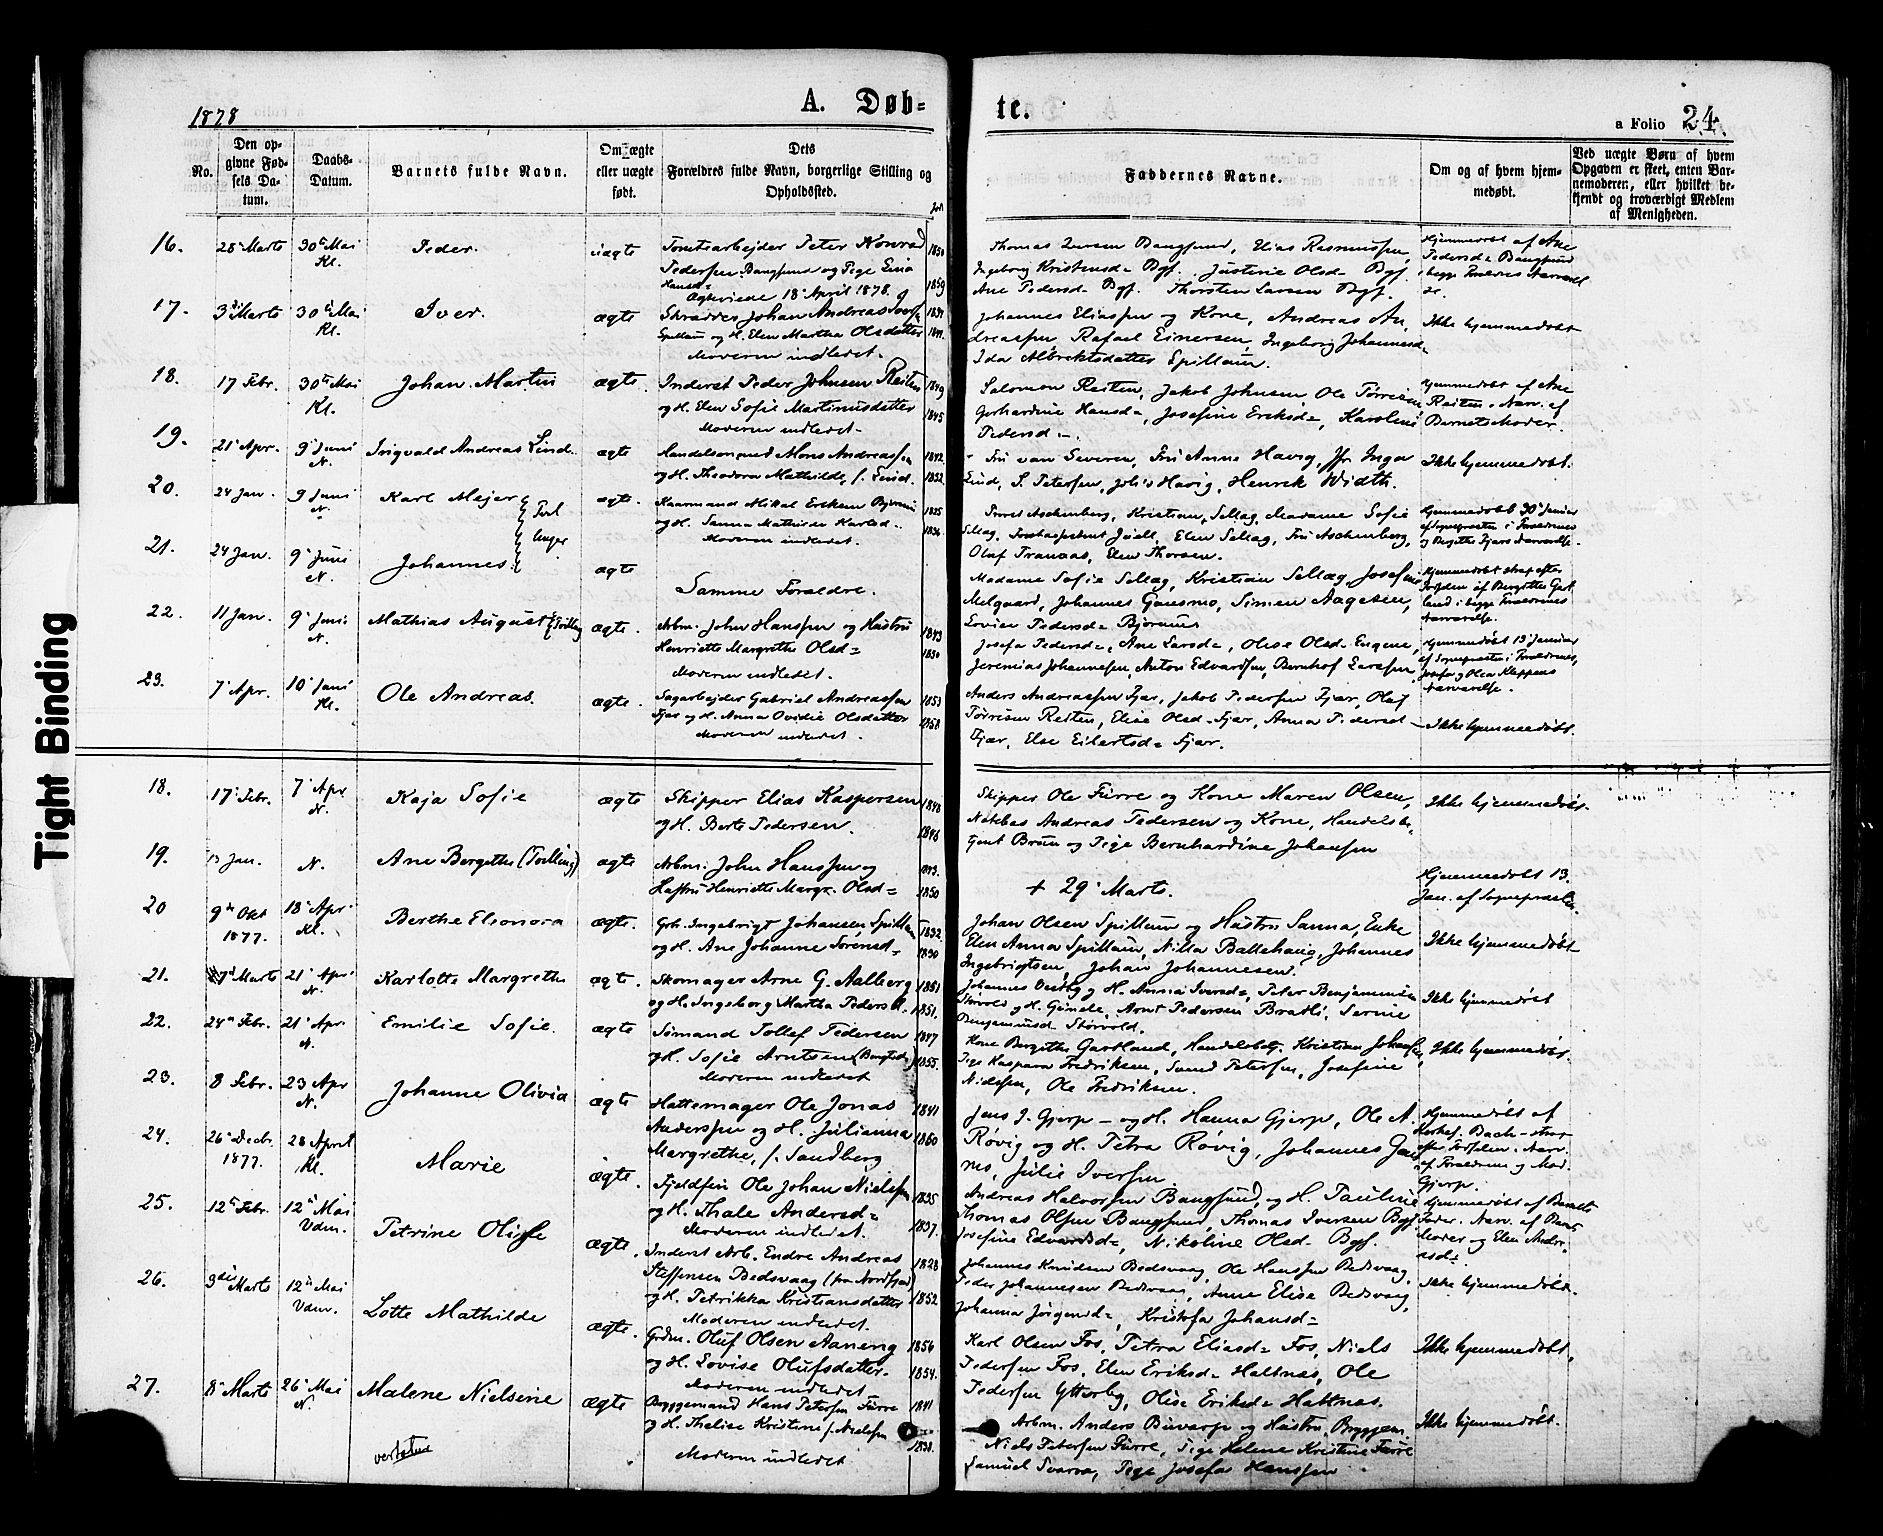 1878
A. Døb=
te.
a Folio 24.
No.
Den op-
givne Fød-
sels Da-
tum.
Daabs-
Datum.
Barnets fulde Navn.
Om ægte
eller uægte
født.
Dets
Forældres fulde Navn, borgerlige Stilling og
Opholdssted.
Faddernes Navne.
Om og af hvem hjem-
medøbt.
Ved uægte Børn af hvem
Opgaven er skeet, enten Bar-
nemoderen, eller hvilket be-
kjendt og troværdigt Medlem
af Menigheden.
16. 28 Marts 30 Mai Kl. Peder. uægte
Tomtearbejder Peter Konrad 1850
Pedersen Bangsund og Pige
1859
Ægteviede 18 April 1878.
Thomas Larsen Bangsund, Elias Rasmussen,
Ingeborg Kristensd= Bgs. Justine Olsd= Bgs.
Ane Pedersd= Bgs. Thorsten Larsen Bgs.
Hjemmedøbt af Ane
Pedersd= Bangsund
i begge Forældres Nærværelse
17. 3 Marts 30 Mai Kl. Iver. ægte
Skrædder Johan Andreas
Spillum og H. Elen Martha Olsdatter
Moderen indledet.
Johannes Eliassen og Kone, Andreas An,
dreassen, Rafael Einersen, Ingeborg Johannesd=
Ida Albrektsdatter Spillum.
Ikke hjemmedøbt
18. 17 Febr. 30 Mai Kl. Johan Martin ægte.
Inderst Peder Johnsen Resten 1849
og H. Elen Sofie Martinusdatter 1845
Moderen indledet.
Salomon Resten, Jakob Johnsen Ole Tørrisen
Gerhardine Hansd=, Josefine Eriksd=, Karoline
Pedersd=.
Hjemmedøbt af Ane
Resten. Nærv. af
Barnets Moder.
19. 21 Apr. 9 Juni N. Ingvald Andreas Lind. ægte
Handelsmand Mons Andreassen 1842.
og H. Theodora Mathilde, f. Lind. 1852.
Fru van Severen, Fru Anne Havig, Jfr. Inga
Lind, S. Petersen, Johs Havig, Henrik Width.
Ikke hjemmedøbt.
20. 24 Jan. 9 Juni N. Karl Mejer ægte.
Kaarmand Mikal Eriksen Bjørum 1835
og H. Sanna Mathilde Karlsd= 1836
Moderen indledet.
Aschenberg, Kristian Sellæg, Madame Sofie
Sellæg, Juell, Elen Sellæg, Fru Aschenberg,
Olaf Tranaas, Elen Thorsen.
Hjemmedøbt 30 Januar
af Sognepresten i Forældrenes
21. 24 Jan. 9 Juni N. Johannes. ægte
Samme Forældre.
Madame Sofie Sellæg, Kristian Sellæg, Josefine
Melgaard, Johannes Gansmo, Simen Aagesen,
Lovise Pedersd= Bjørum
Hjemmedøbt strax efter
Fødslen af Bergitte Gart
land i begge Forældrenes
Nærværelse.
22. 11 Jan. 9 Juni. N. Mathias August (Tvilling) ægte.
Arbm. John Hanssen og Hustru 1843
Henriette Margrethe Olsd= 1850
Moderen indledet.
Josefa Pedersd=, Ane Larsd=, Olise Olsd. Engene,
Jeremias Johannesen, Anton Edvardsen, Bernhof Larssen,
Hjemmedøbt 13 Januar
af Sognepresten i Forældrenes,
Nærværelse.
23. 7 Apr. 10 Juni Kl. Ole Andreas. ægte.
Sagarbejder Gabriel Andreassen 1853
Fjær og H. Anna Ovidie Olsdatter 1858
Moderen indledet.
Anders Andreassen Fjær, Jakob Pedersen Fjær, Olaf
Tørrisen Resten, Elise Olsd. Fjær, Anna Pedersd=
Fjær, Else Eilertsd= Fjær.
Ikke hjemmedøbt.
18. 17 Febr. 7 Apr N. Kaja Sofie ægte
Skipper Elias Kaspersen 1848
og H. Berte Pedersen. 1846
Skipper Ole Fürre og Kone Maren Olsen,
Andreas Pedersen og Kone, Handelsbe,
tjent Bruun og Pige Bernhardine Johansen
Ikke hjemmedøbt.
19. 13 Jan. N. Ane Bergethe (Tvilling) ægte
Arbm. John Hanssen og 1843.
Hustru Henriette Margr. Olsd= 1850
+ 29 Marts.
Hjemmedøbt 13.
Jan. af Sognepresten.
20 9 Okt 1877. 18 Apr Kl. Berthe Elonora ægte.
Grb. Ingebrigt Johansen Spillum 1832.
og H. Ane Johanne Sørensd= 1830
Johan Olsen Spillum og Hustru Sanna, Enke
Elen Anna Spillum, Nilla Ballehaug, Johannes
Ingebrigtsen, Johan Johannesen.
Ikke hjemmedøbt
21. 7 Marts 21 Apr N. Karlotte Margrethe ægte.
Skomager Arne G. Aalberg 1851
og H. Ingeborg Martha Pedersd. 1851.
Johannes Vestby og H. Anna Iversd=, Peter Benjaminsen
Størvold og H. Gunele, Arnt Pedersen Bratli, Serine
Benjaminsd Størvold.
Ikke hjemmedøbt
22. 24 Febr. 21 Apr. N. Emilie Sofie. ægte
Sømand Tollef Pedersen 1847
og H. Sofie Arntsen 1855.
Moderen indledet
Kone Bergethe Gartland, Handelsbetj. Kristian Johansen,
Pige Kaspara Fredriksen, Svend Petersen, Josefine
Nielssen, Ole Fredriksen.
Ikke hjemmedøbt.
23. 8 Febr. 23 Apr N. Johanne Olivia ægte
Hattemager Ole Jonas 1841
Anderssen og H. Julianna 1860
Margrethe, f. Sandberg
Jens J. Gjerp – og H. Hanna Gjerp, Ole A.
Røvig og H. Petra Røvig, Johannes Gans
mo, Julie Iversen.
Hjemmedøbt af
Bach – strax
efter Fødslen. Nærv.
af Forældrene og Mad.
Gjerp.
24. 26 Decbr. 1877. 28 April Kl. Marie ægte.
Fjeldfin Ole Johan Nielssen 1835
og H. Thale Andersd= 1837.
Moderen indledet.
Andreas Halvorsen Bangsund, og H. Pauline
Thomas Olsen Bangsund, Thomas Iversen Bgs.
Josefine Edvardsd=, Nikoline Olsd. Bgs.
Hjemmedøbt af Barnets
Fader. Nærv. af Barnets
Moder og Elen Ander,
sd=
25. 12 Febr. 12 Mai Vdm. Petrine Olise ægte.
Inderst Arb. Endre Andreas 1828
Steffensen Bedsvaag (fra Nordfjord)
og H. Petrikka Kristiansdatter 1852
Moderen indledet.
Johannes Knudsen Bedsvaag, Ole Hanssen Bedsvaag,
Peder Johannessen Bedsvaag, Anne Elise Bedsvaag,
Johanna Jørgensd=, Kristofa Johansd=
Ikke hjemmedøbt.
26. 3die Marts 12 Mai Vdm. Lotte Mathilde ægte.
Grdm. Oluf Olsen Aaneng 1856
og H. Lovise Olufsdatter. 1854.
Moderen indledet
Karl Olsen Fos, Petra Eliasd= Fos, Niels
Pedersen Fos, Elen Eriksd= Haltnes, Ole
Pedersen Ytterby, Olise Eriksd= Haltnes.
Ikke hjemmedøbt.
27. 8 Marts 26 Mai N Malene Nielsine ægte
Bryggemand Hans Petersen Fürre 1841
og H. Thalise Kristine f. Nielssen 1838.
Moderen indledet
Arbm. Anders Buvarp og Hustru, Bryggem.
Niels Petersen Fürre, Pige Helene Kristine Fürre
Samuel Svarva, Pige Josefa Hanssen
Ikke hjemmedøbt.
vertatur
Tight Binding